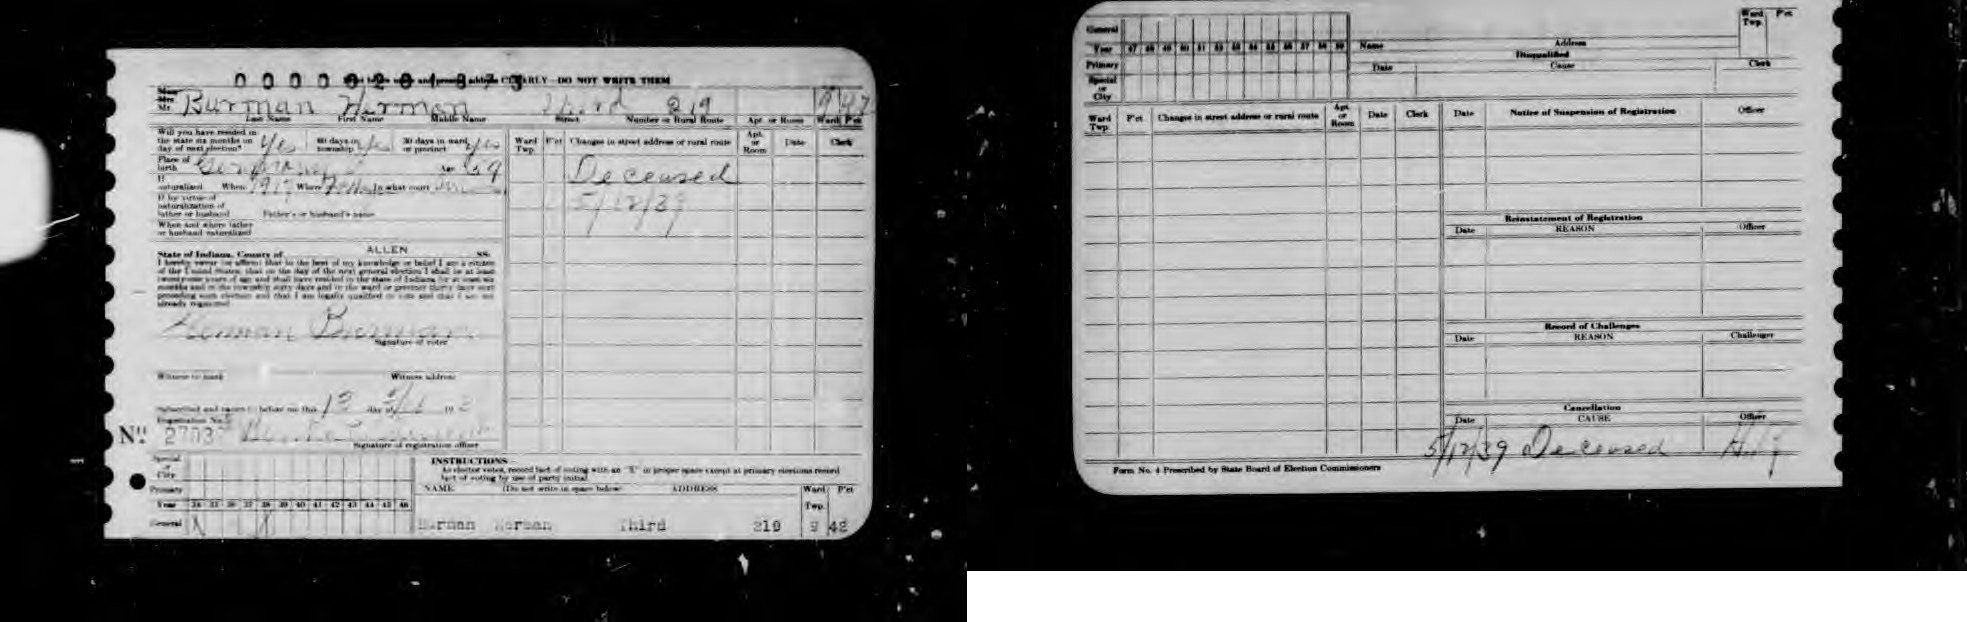 0 0 0 0 0 2 0 1 8 7 5
and present address CLEARLY—DO NOT WRITE THEM
Mrs.
Mr. Burman Herman Third 219 9 42
Last Name First Name Middle Name Street Number or Rural Route Apt. or Room Ward P'ct
Will you have resided in
the state six months on
day of next election? Yes 60 days in
township Yes 30 days in ward
or precinct Yes
Place of
birth Germany Age 69
If
naturalized When 1917 Where In what court
If by virtue of
naturalization of
father or husband Father's or husband's name
When and where father
or husband naturalized
State of Indiana, County of ALLEN SS:
I hereby swear (or affirm) that to the best of my knowledge or belief I am a citizen
of the United States, that on the day of the next general election I shall be at least
twenty-one years of age and shall have resided in the state of Indiana for at least six
months and in the township sixty days and in the ward or precinct thirty days next
preceding such election and that I am legally qualified to vote and that I am not
already registered.
Herman Burman
Signature of voter
Witness to mark Witness address
Subscribed and sworn to before me this 12 day of 19
Registration No.
No. 2703
Signature of registration officer
Ward
Twp. P'ct Changes in street address or rural route Apt.
or
Room Date Clerk
Deceased
5/12/39
Special
or
City
Primary
Year 34 35 36 37 38 39 40 41 42 43 44 45 46
General X X
INSTRUCTIONS
As elector votes, record fact of voting with an "X" in proper space except at primary elections record
fact of voting by use of party initial.
NAME (Do not write in space below) ADDRESS Ward
Twp. P'ct
Burman Herman Third 219 9 42
General
Year 47 48 49 50 51 52 53 54 55 56 57 58 59
Primary
Special
or
City
Name Address
Ward
Twp. P'ct
Disqualified
Date Cause Clerk
Ward
Twp. P'ct Changes in street address or rural route Apt.
or
Room Date Clerk
Date Notice of Suspension of Registration Officer
Reinstatement of Registration
Date REASON Officer
Record of Challenges
Date REASON Challenger
Cancellation
Date CAUSE Officer
5/12/39 Deceased
Form No. 4 Prescribed by State Board of Election Commissioners